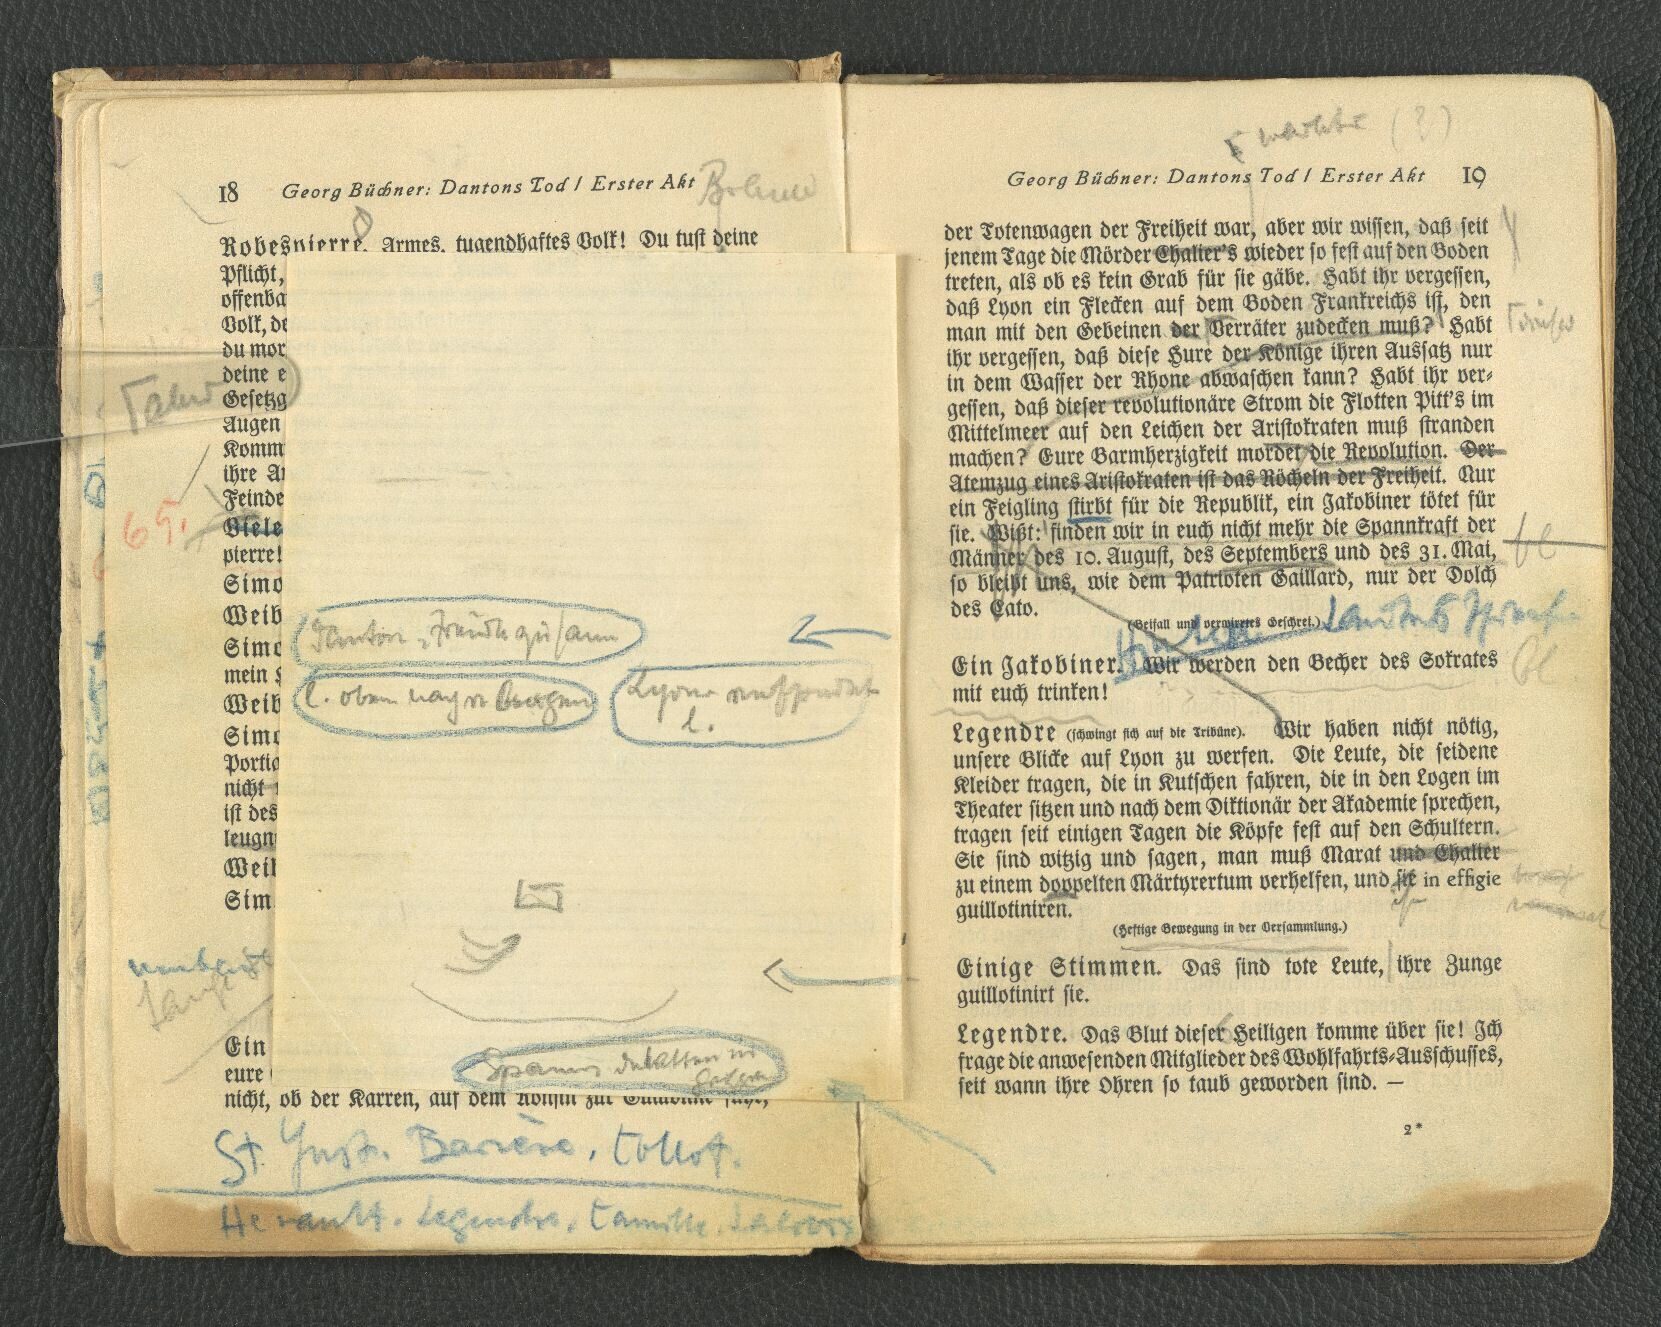 18 Georg Büchner: Dantons Tod / Erster Akt
Robespierre. Armes, tugendhaftes Volk! Du tust deine
Pflicht,
offenba
Volk, de
du mor
deine e
Gesetzg
Augen
Komm
ihre A
Feinde
65.
Viele
pierre!
Simo
Weib
Simo
mein
Weib
Simo
Portia
nicht
ist des
leugn
Weib
Sim
Ein
eure
nicht, ob der Karren, auf dem Ronsin zur Guillotine fuhr,
St. Just. Barrère. Collot.
Herault. Legendre. Camille. Lacroix
Georg Büchner: Dantons Tod / Erster Akt 19
der Totenwagen der Freiheit war, aber wir wissen, daß seit
jenem Tage die Mörder Chalier's wieder so fest auf den Boden
treten, als ob es kein Grab für sie gäbe. Habt ihr vergessen,
daß Lyon ein Flecken auf dem Boden Frankreichs ist, den
man mit den Gebeinen der Verräter zudecken muß? Habt
ihr vergessen, daß diese Hure der Könige ihren Aussatz nur
in dem Wasser der Rhone abwaschen kann? Habt ihr ver-
gessen, daß dieser revolutionäre Strom die Flotten Pitt's im
Mittelmeer auf den Leichen der Aristokraten muß stranden
machen? Eure Barmherzigkeit mordet die Revolution. Der
Atemzug eines Aristokraten ist das Röcheln der Freiheit. Nur
ein Feigling stirbt für die Republik, ein Jakobiner tötet für
sie. Wißt: finden wir in euch nicht mehr die Spannkraft der
Männer des 10. August, des Septembers und des 31. Mai,
so bleibt uns, wie dem Patrioten Gaillard, nur der Dolch
des Cato.
(Beifall und verwirrtes Geschrei.)
Ein Jakobiner. Wir werden den Becher des Sokrates
mit euch trinken!
Legendre (schwingt sich auf die Tribüne). Wir haben nicht nötig,
unsere Blicke auf Lyon zu werfen. Die Leute, die seidene
Kleider tragen, die in Kutschen fahren, die in den Logen im
Theater sitzen und nach dem Diktionär der Akademie sprechen,
tragen seit einigen Tagen die Köpfe fest auf den Schultern.
Sie sind witzig und sagen, man muß Marat und Chalier
zu einem doppelten Märtyrertum verhelfen, und sie in effigie
guillotiniren.
(Heftige Bewegung in der Versammlung.)
Einige Stimmen. Das sind tote Leute, ihre Zunge
guillotinirt sie.
Legendre. Das Blut dieser Heiligen komme über sie! Ich
frage die anwesenden Mitglieder des Wohlfahrts-Ausschusses,
seit wann ihre Ohren so taub geworden sind. —
2*